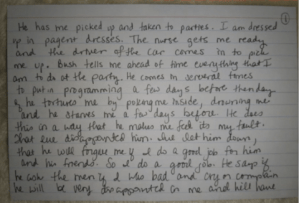 He has me picked up and taken to parties. I am dressed
up in pagent dresses. The nurse gets me ready
and the driver of the car comes in to pick
me up. Bush tells me ahead of time everything that I
am to do at the party. He comes in several times
to put in programming a few days before then day
he tortures me by poking me inside, drowning me
and he starves me a few days before. He does
this in a way that he makes me feel its my fault.
That Ive disappointed him. Ive let him down,
that he will forgive me if I do a good job for him
and his friends. So I do a good job. He says if
he the men if I was bad and cry or complain
he will be very disappointed in me and hill have